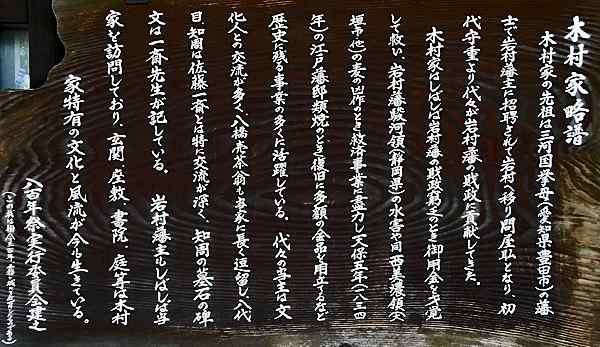 木村家略譜
木村家の先祖は三河国挙母(愛知県豊田市)の藩
士で岩村藩主に招聘されて岩村へ移り問屋職となり、初
代守重より代々が岩村藩の財政に貢献してきた。
木村家はしばしば岩村藩の財政窮乏のとき御用金を才覚
して救い、岩村藩駿河領(静岡県)の水害や同西美濃領(大
垣市他)の麦の凶作のとき救済事業に尽力し天保五年(一八三四
年)の江戸藩邸類焼のとき復旧に多額の金品を用立するなど
歴史に残る事業の多くに活躍している。 代々の当主は文
化人との交流が多く八橋売茶翁も当家に長く逗留し八代
目知周は佐藤一斎とは特に交流が深く、知周の墓石の碑
文は一斎先生が記している。 岩村藩主もしばしば当
家を訪問しており、玄関、座敷、書院、庭等は木村
家特有の文化と風流が今も生きている。
八百年祭実行委員会建之